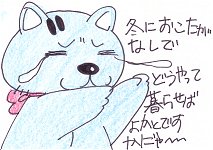 冬におこたが
なしで
どうやって
暮らせば
よかとです
かにゃ〜